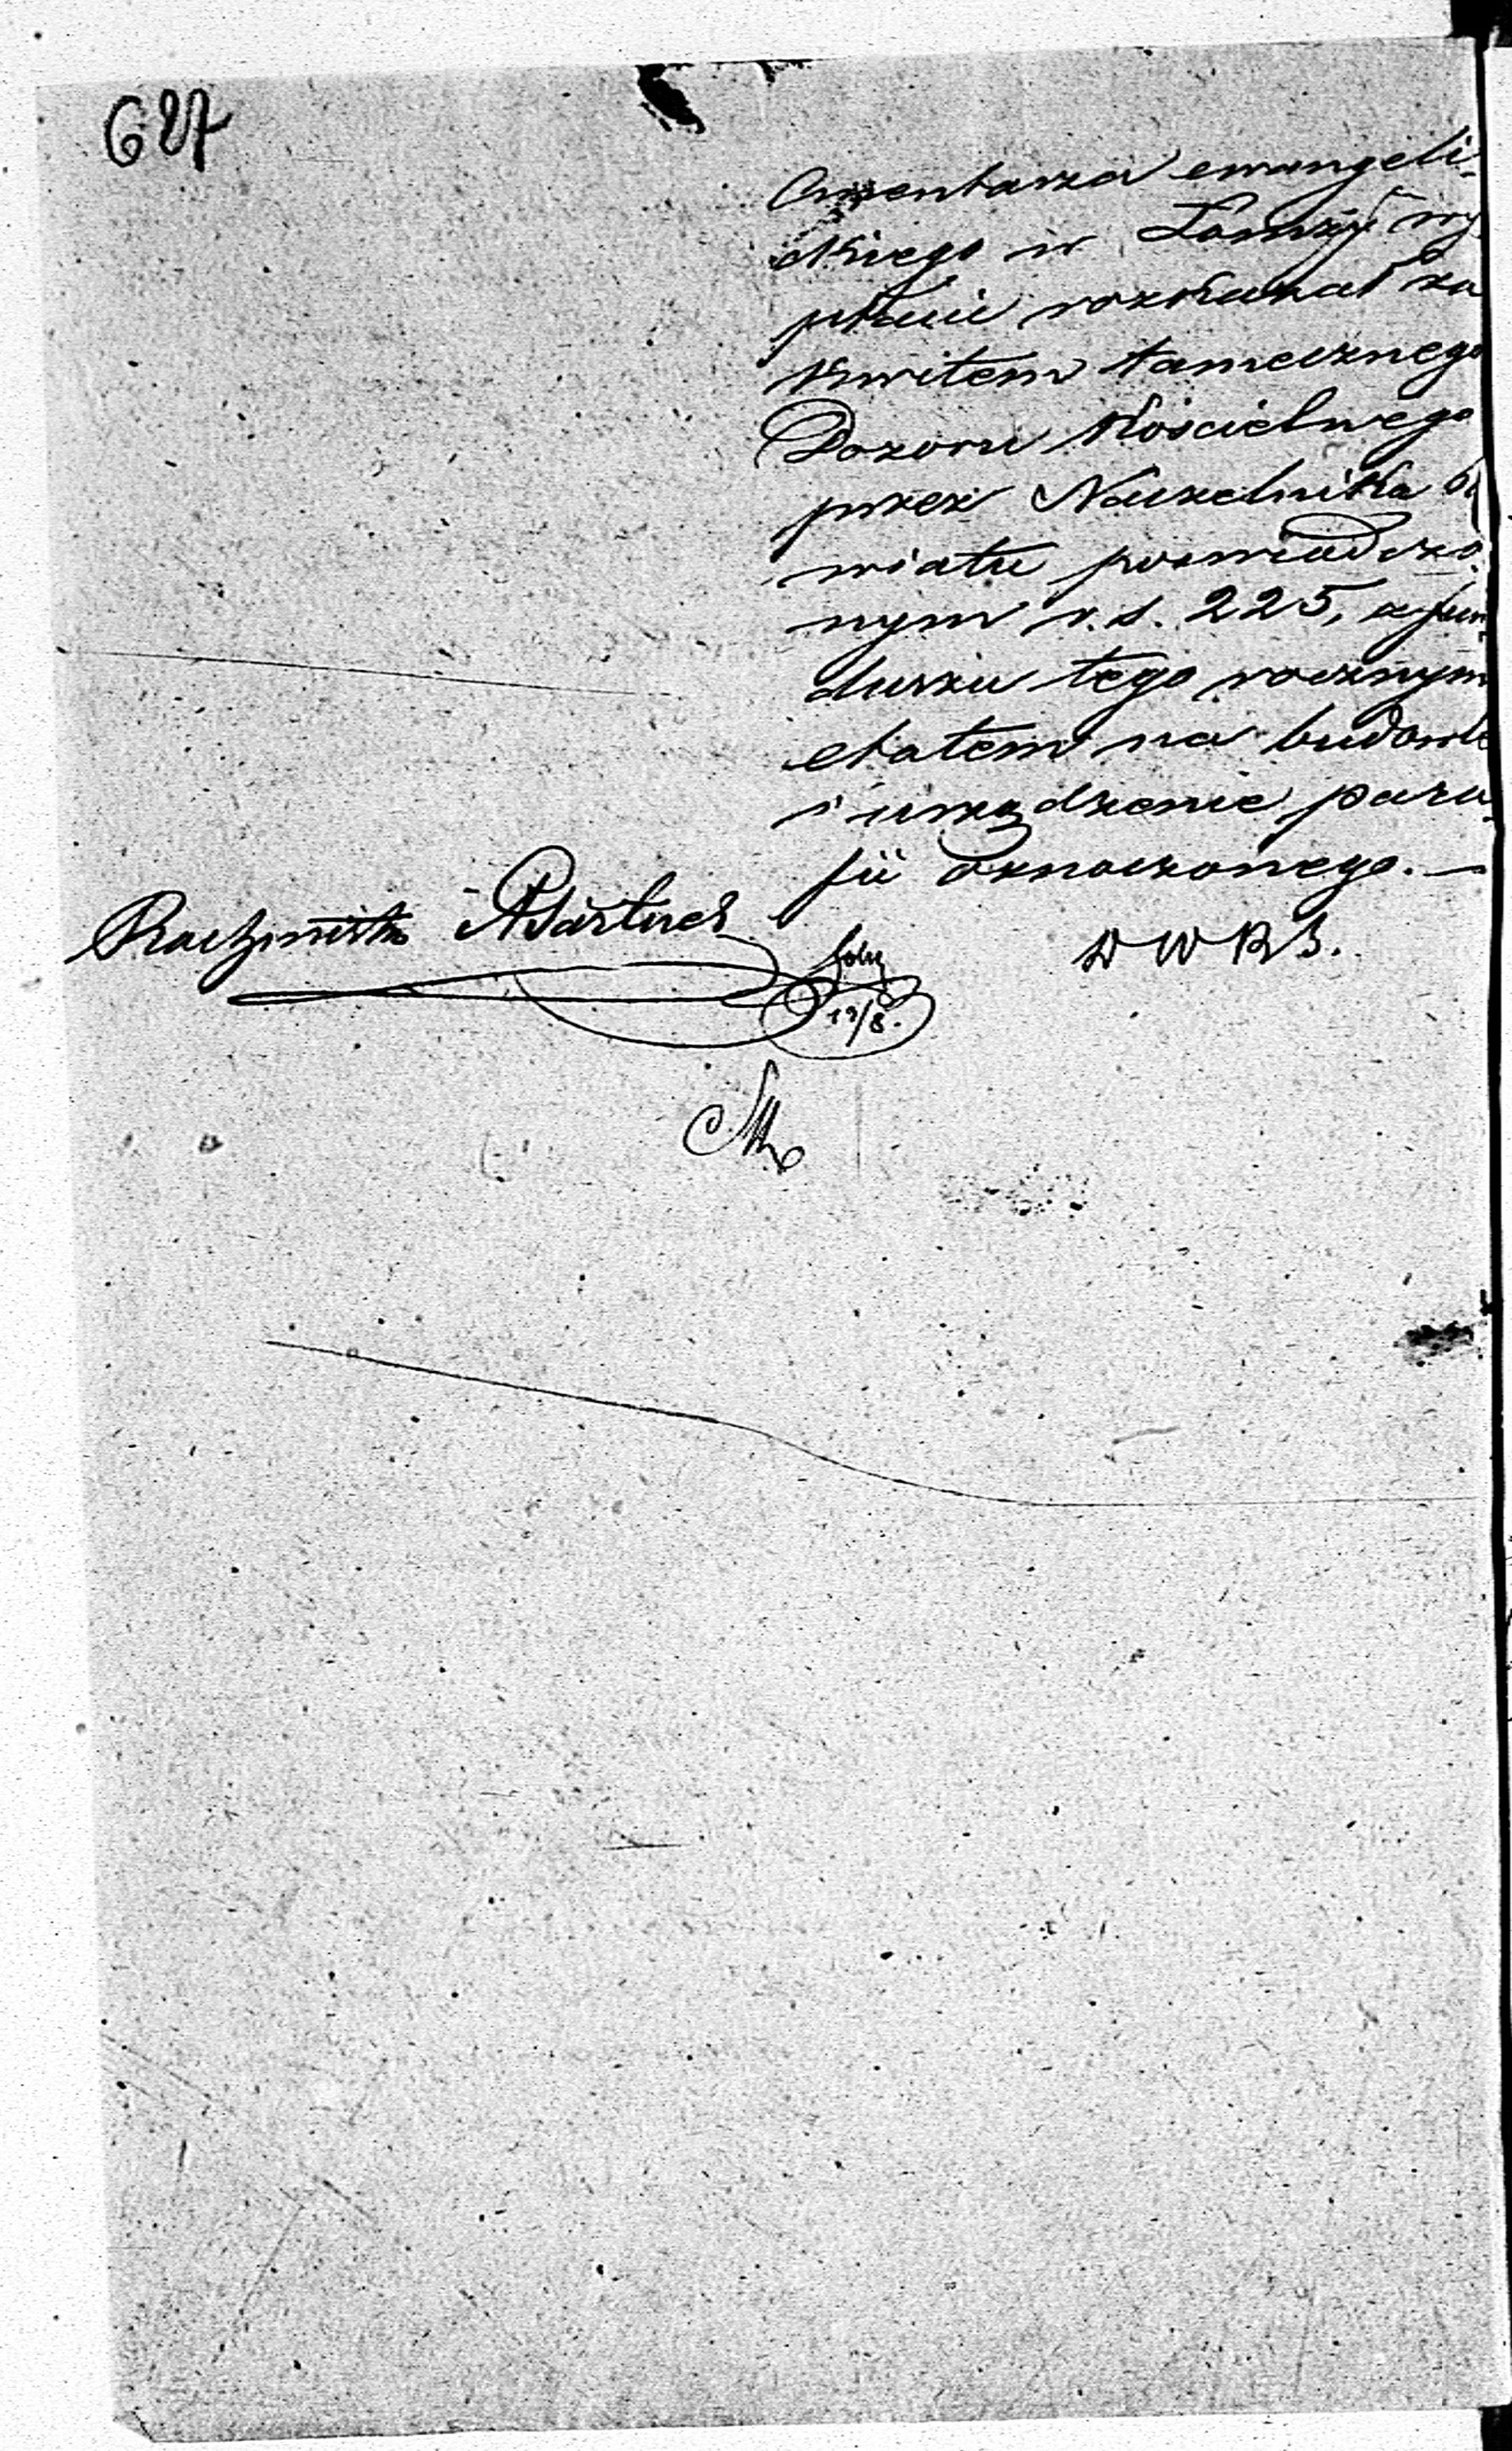 627
Cmentarza ewangeli-
ckiego w Łomży wy
płacić rozkazał za
kwitem tamecznego
Dozoru Kościelnego
przez Naczelnika Po
wiatu poświadczo-
nym r. s. 225, z fun-
duszu tego rocznym
etatem na budowle
i urządzenie para-
fii oznaczonego. —
Rachmistrz
D W R S.
19/8.